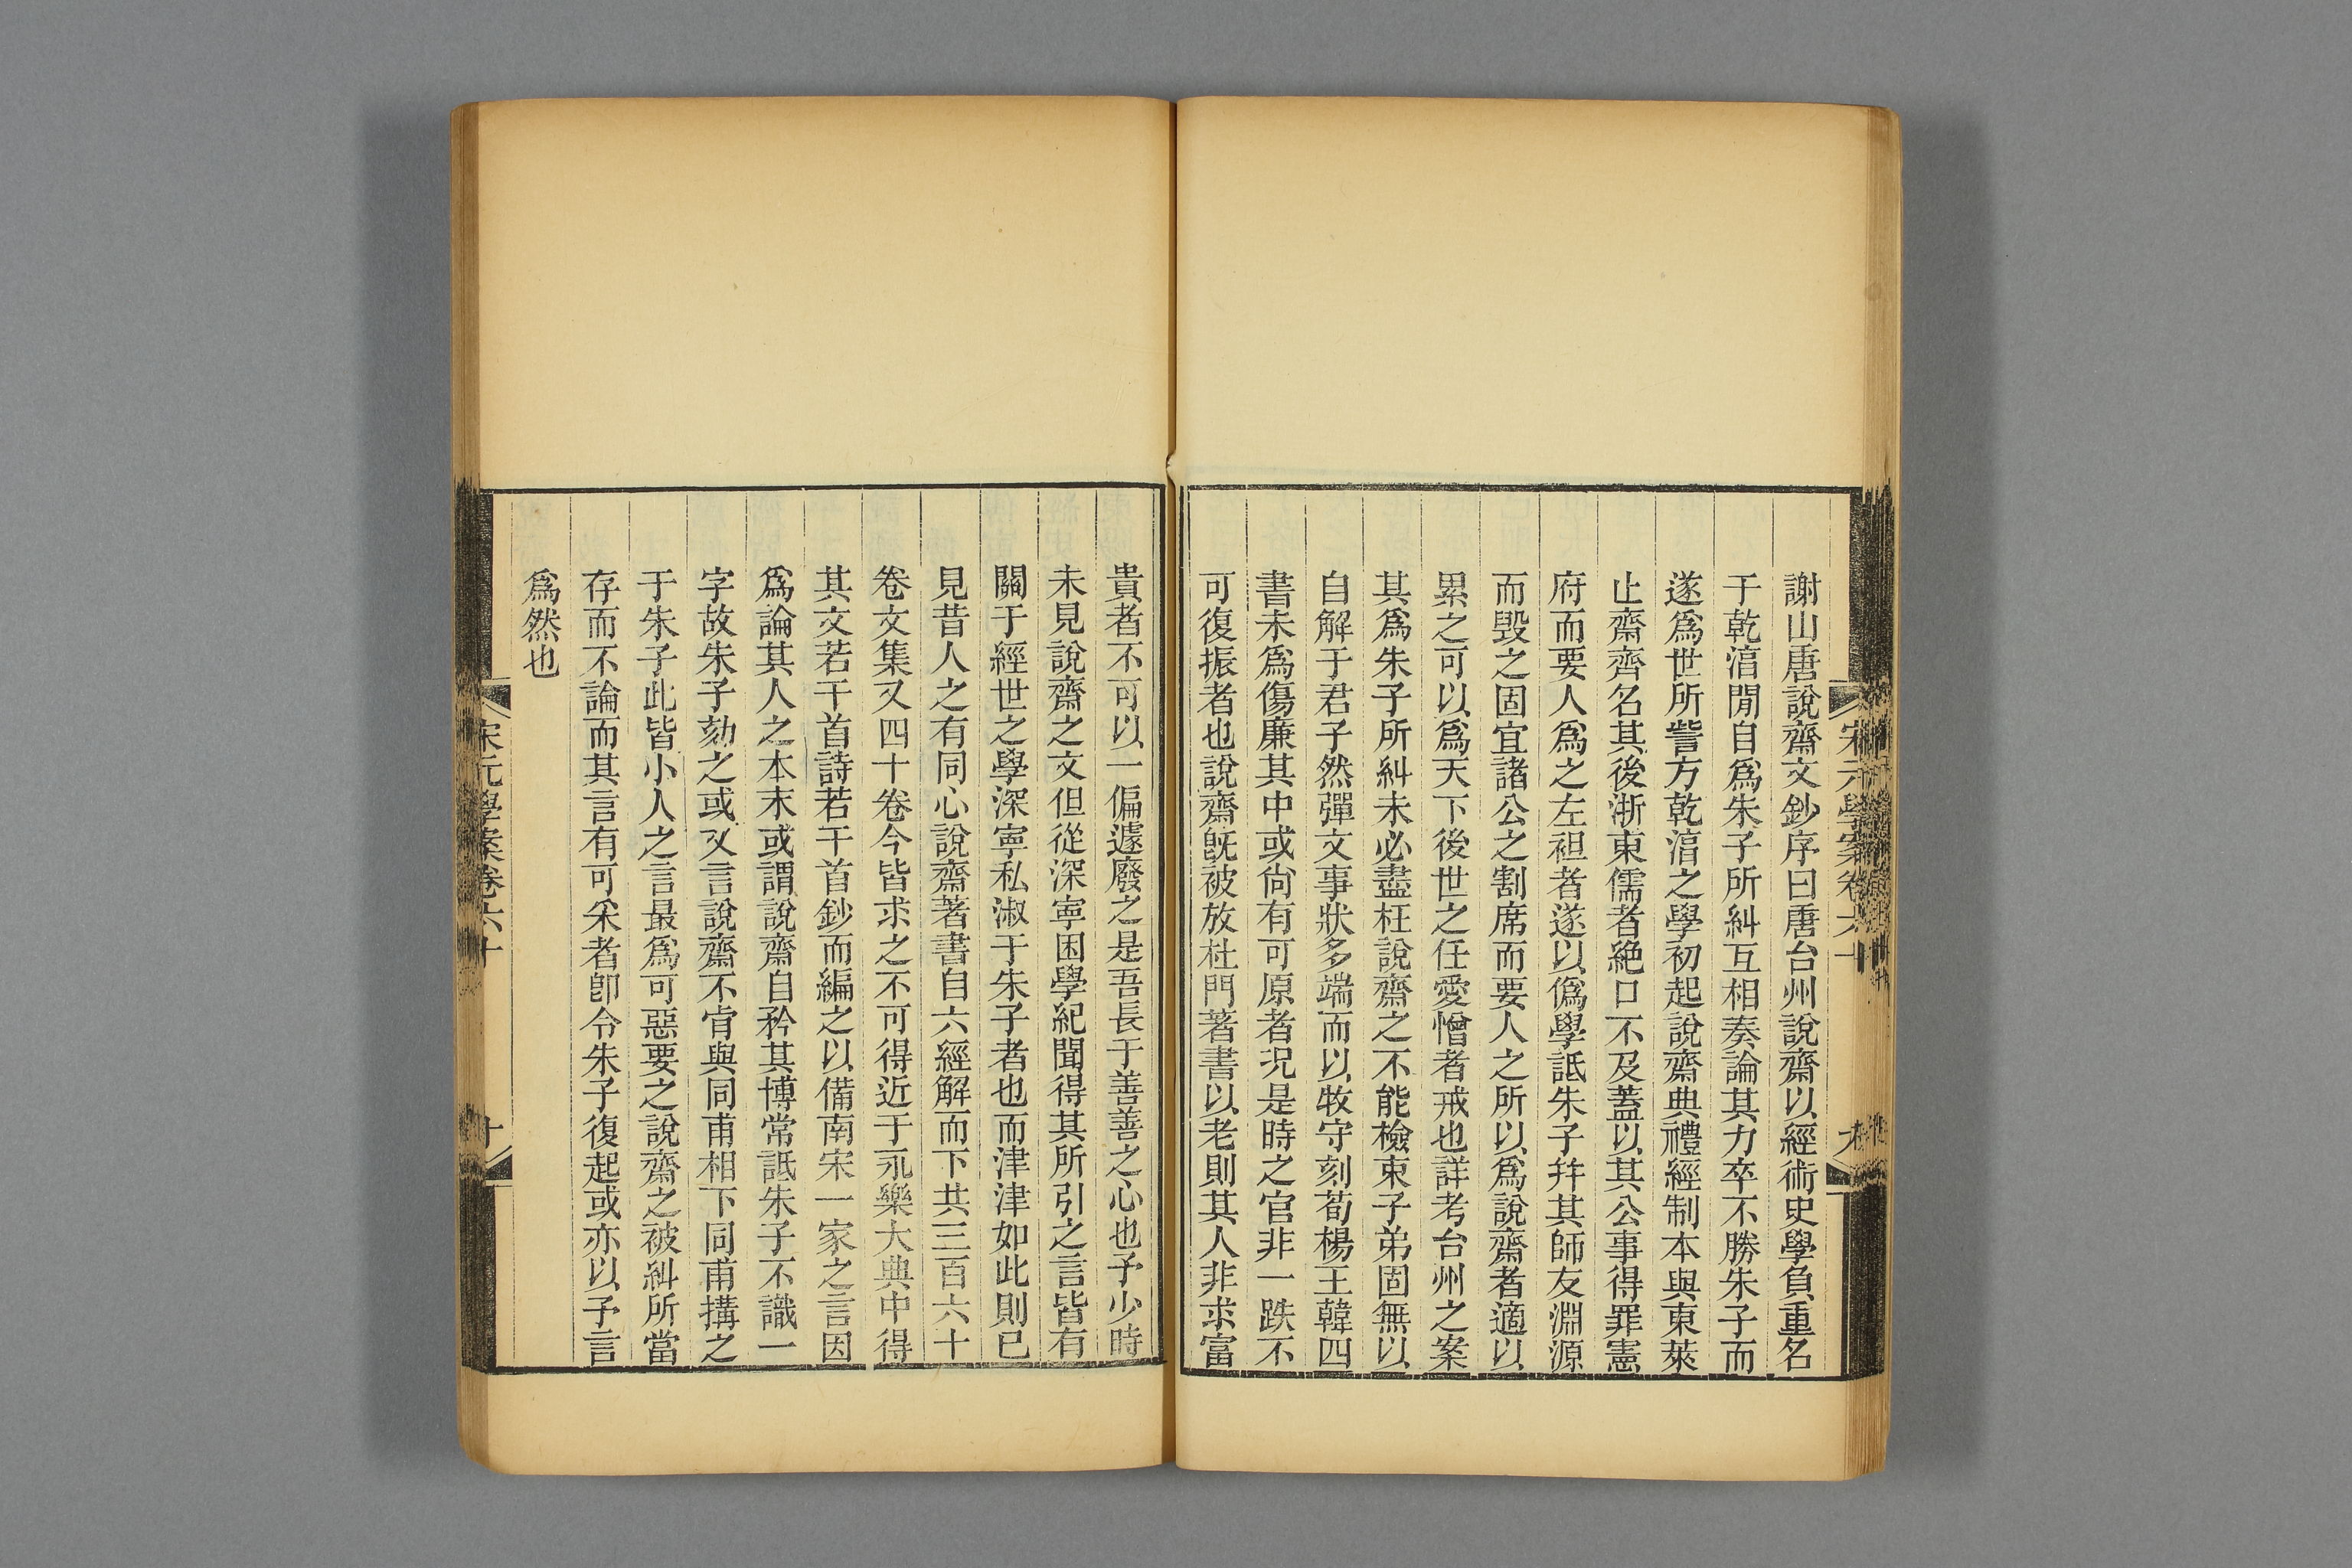 宋元學案卷六十
九
謝山唐說齋文鈔序曰唐台州說齋以經術史學負重名
于乾淳閒自爲朱子所糾互相奏論其力卒不勝朱子而
遂爲世所訾方乾淳之學初起說齋典禮經制本與東萊
止齋齊名其後浙東儒者絕口不及蓋以其公事得罪憲
府而要人爲之左袒者遂以僞學詆朱子幷其師友淵源
而毀之固宜諸公之割席而要人之所以爲說齋者適以
累之可以爲天下後世之任愛憎者戒也詳考台州之案
其爲朱子所糾未必盡枉說齋之不能檢束子弟固無以
自解于君子然彈文事狀多端而以牧守刻荀楊王韓四
書未爲傷廉其中或尙有可原者况是時之官非一跌不
可復振者也說齋旣被放杜門著書以老則其人非求富
貴者不可以一偏遽廢之是吾長于善善之心也予少時
未見說齋之文但從深寧困學紀聞得其所引之言皆有
關于經世之學深寧私淑于朱子者也而津津如此則已
見昔人之有同心說齋著書自六經解而下共三百六十
卷文集又四十卷今皆求之不可得近于永樂大典中得
其文若干首詩若干首鈔而編之以備南宋一家之言因
爲論其人之本末或謂說齋自矜其博常詆朱子不識一
字故朱子劾之或又言說齋不肯與同甫相下同甫搆之
于朱子此皆小人之言最爲可惡要之說齋之被糾所當
存而不論而其言有可采者卽令朱子復起或亦以予言
爲然也
宋元學案卷六十
十